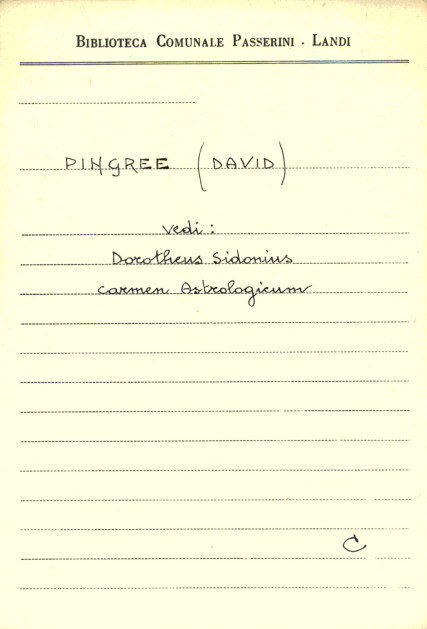 BIBLIOTECA COMUNALE PASSERINI - LANDI
PINGREE (DAVID)
Vedi:
Dorotheus Sidonius
Carmen Astrologicum
C